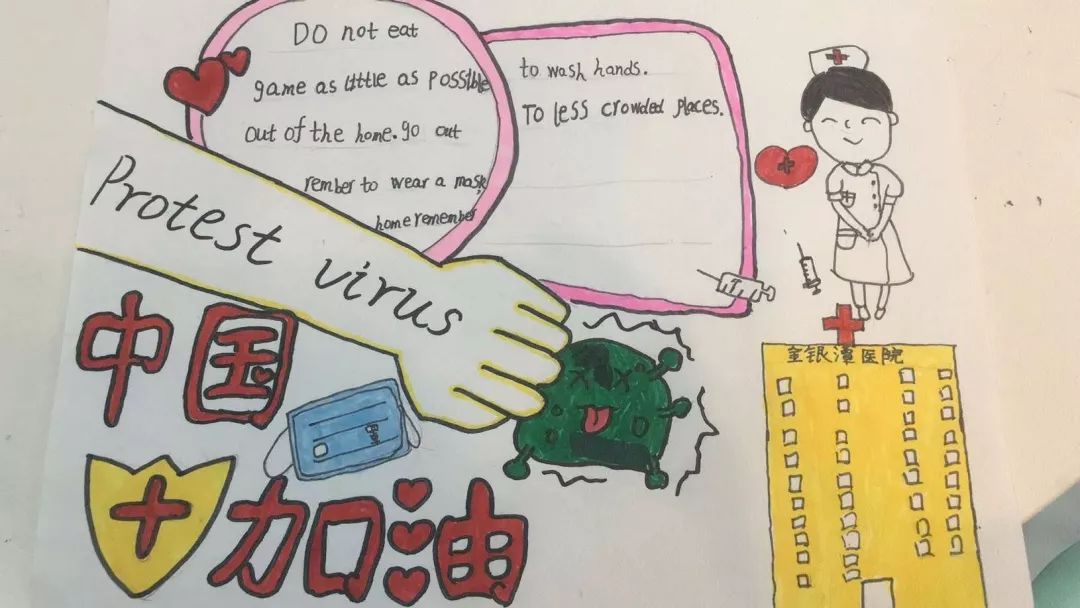 DO not eat
game as little as possible
out of the home. go out
rember to wear a mask
home remember
to wash hands.
To less crowded places.
Protest virus
中国
加油
金银潭医院